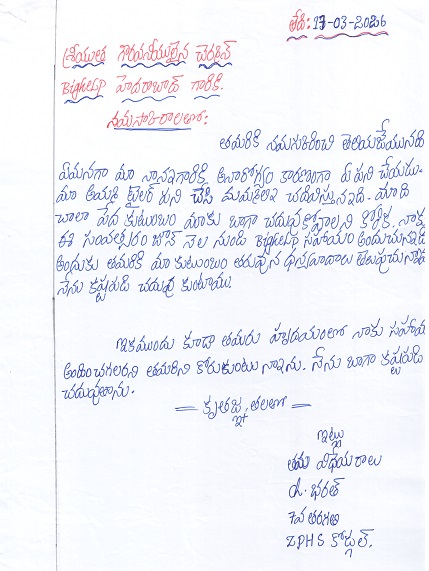 తేది: 17-03-2016
శ్రీయుత గౌరవనీయులైన చైర్మన్
BigHelp హైదరాబాద్ గారికి.
నమస్కారాలతో:
తమరికి నమస్కరించి తెలియజేయునది
ఏమనగా మా నాన్నగారికి అనారోగ్యం కారణంగా ఏ పని చేయడు.
మా అమ్మ టైలర్ పని చేసి మమ్మల్ని చదివిస్తున్నది. మాది
చాలా పేద కుటుంబం మాకు బాగా చదువుకోవాలని కోరిక. నాకు
ఈ సంవత్సరం జూన్ నెల నుండి BigHelp సహాయం అందుచున్నది
అందుకు తమరికి మా కుటుంబం తరుపున ధన్యవాదాలు తెలుపుచున్నాము
నేను కష్టపడి చదువు కుంటాము.
ఇకముందు కూడా తమరు హృదయంలో నాకు సహాయం
అందించగలరని తమరిని కోరుకుంటు న్నాను. నేను బాగా కష్టపడి
చదువుతాను.
= కృతజ్ఞతలతో =
ఇట్లు
తమ విధేయరాలు
ch. భరత్
7వ తరగతి
ZPHS కోడ్గల్.